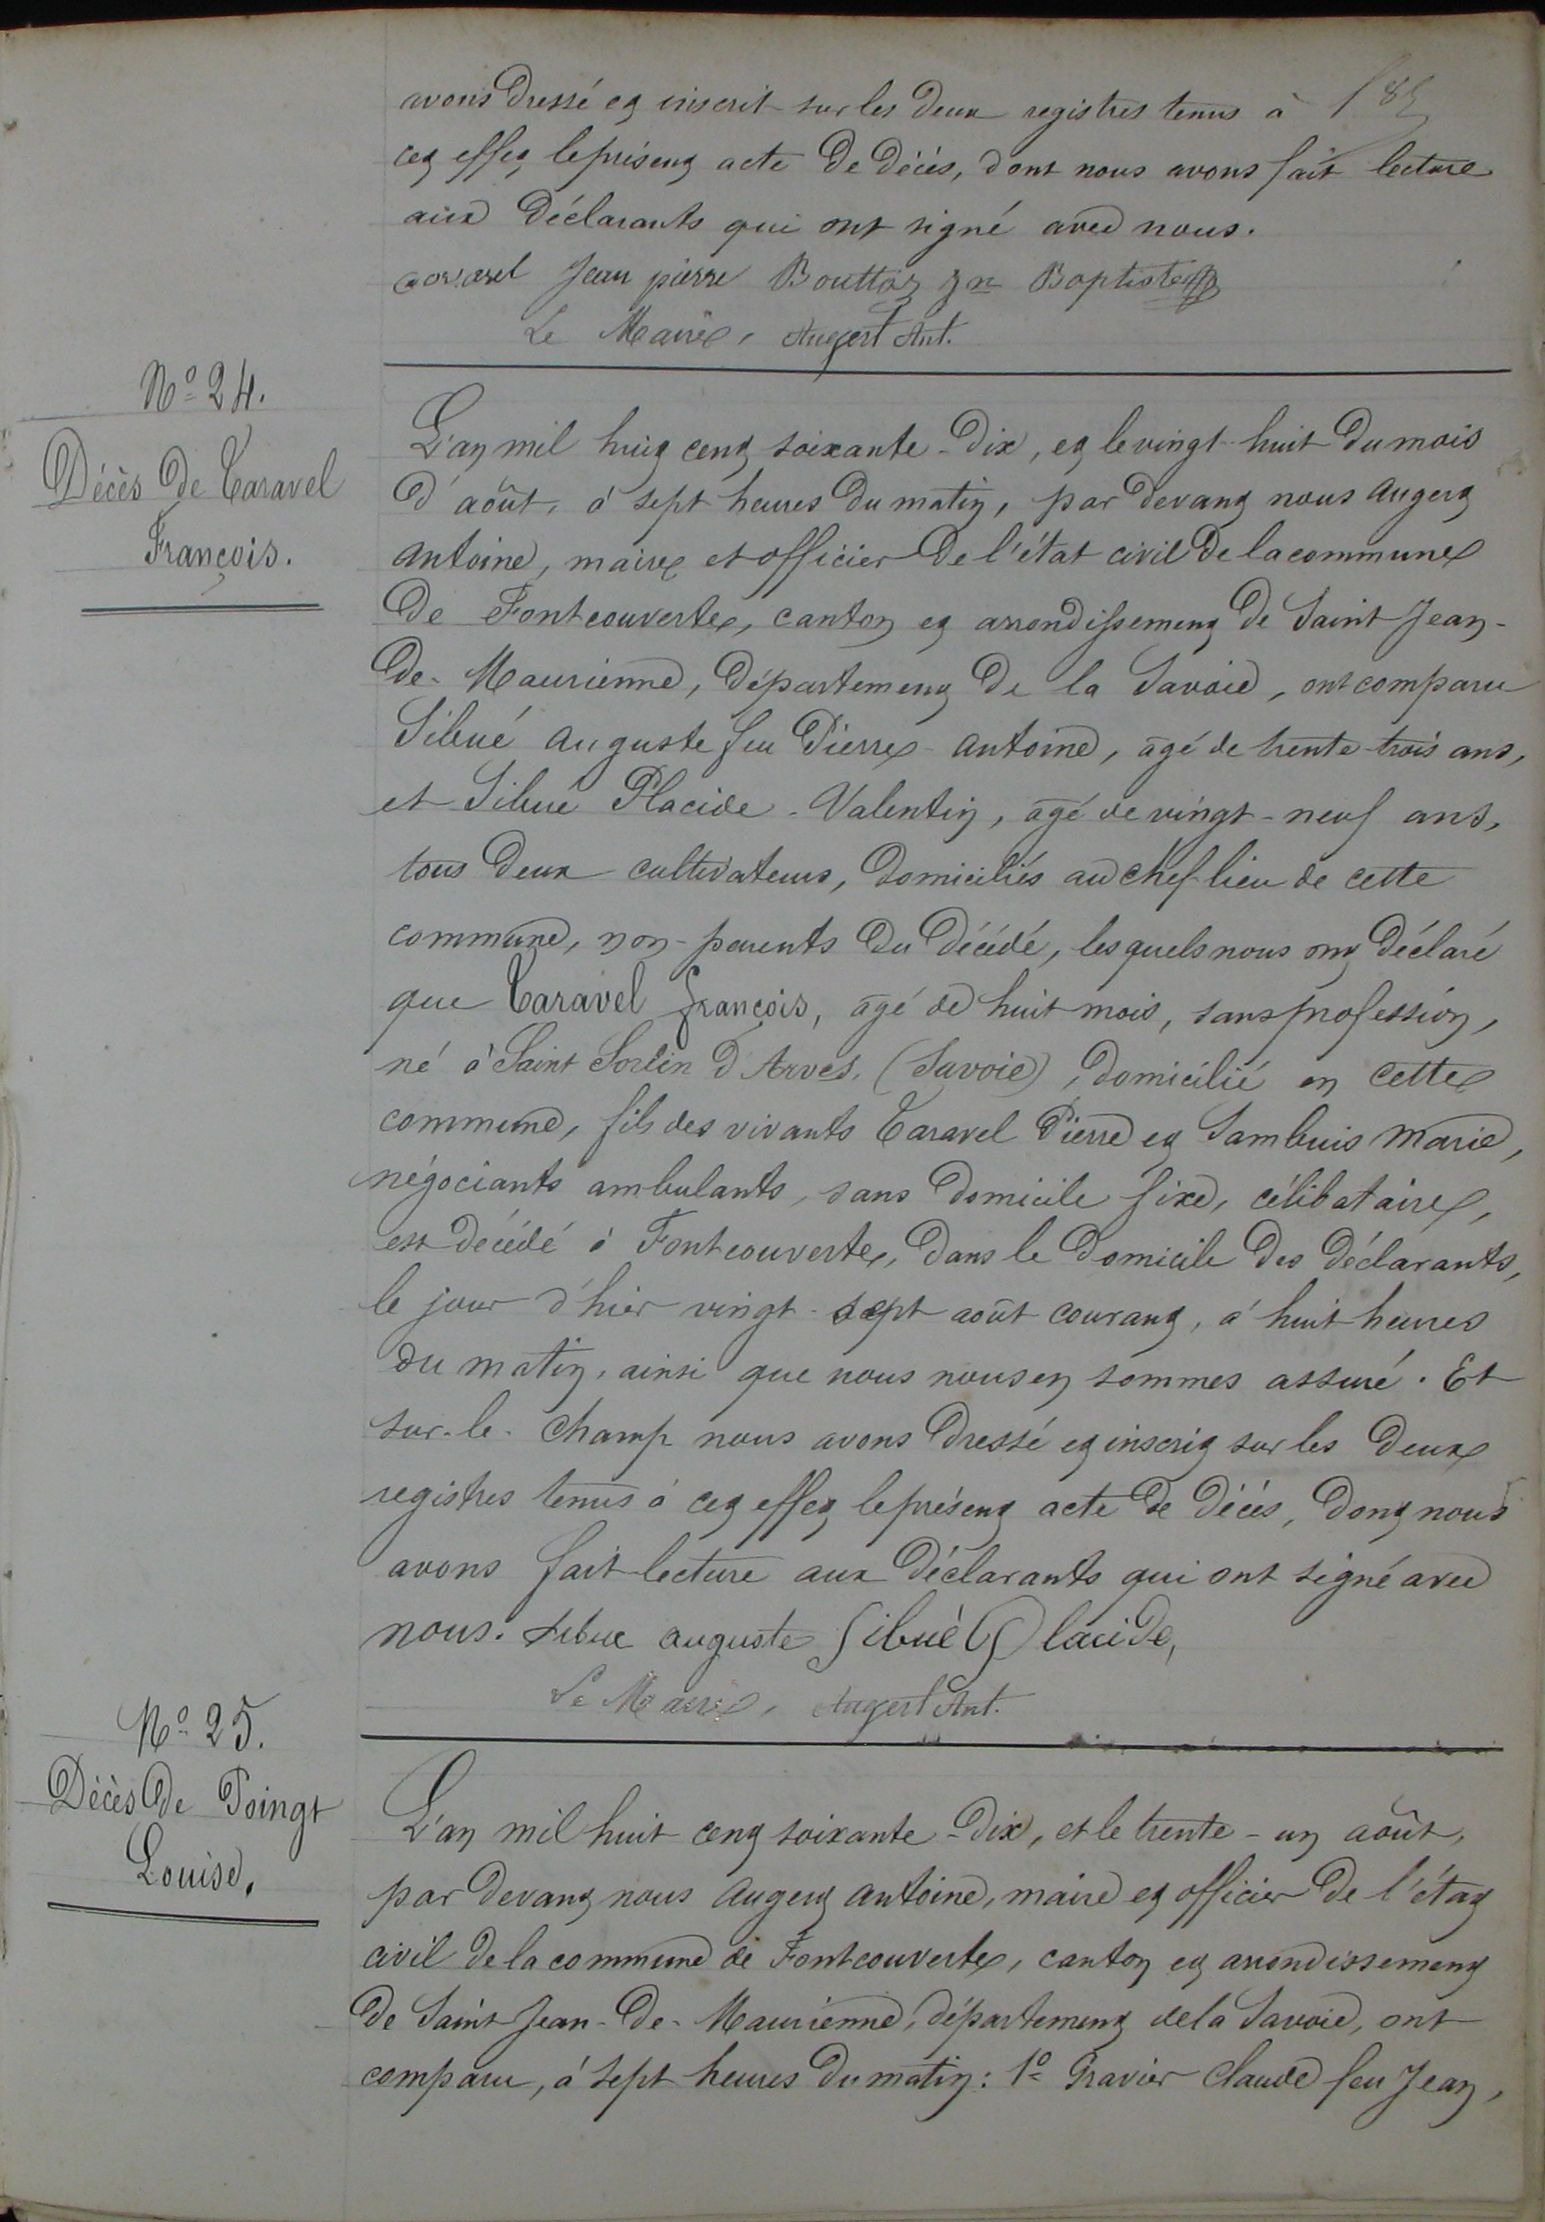 avons dressé et inscrit sur les deux registres tenus à
cet effet le présent acte de décès, dont nous avons fait lecture
aux déclarants qui ont signé avec nous.
Jean pierre Bouttaz Jn Baptiste
Le Maire, Augert Ant.
N° 24.
Décès de Taravel
François.
L'an mil huit cent soixante-dix, et le vingt-huit du mois
d'août, à sept heures du matin, par devant nous Augert
Antoine, maire et officier de l'état civil de la commune
de Fontcouverte, canton et arrondissement de Saint Jean-
de-Maurienne, département de la Savoie, ont comparu
Sibué Auguste feu Pierre-Antoine, âgé de trente-trois ans,
et Sibué Placide-Valentin, âgé de vingt-neuf ans,
tous deux cultivateurs, domiciliés au chef-lieu de cette
commune, non-parents du décédé, lesquels nous ont déclaré
que Taravel François, âgé de huit mois, sans profession,
né à Saint Sorlin d'Arves, (Savoie), domicilié en cette
commune, fils des vivants Taravel Pierre et Sambuis Marie,
négociants ambulants, sans domicile fixe, célibataire,
est décédé à Fontcouverte, dans le domicile des déclarants,
le jour d'hier vingt-sept août courant, à huit heures
du matin, ainsi que nous nous en sommes assuré. Et
sur-le-champ nous avons dressé et inscrit sur les deux
registres tenus à cet effet le présent acte de décès, dont nous
avons fait lecture aux déclarants qui ont signé avec
nous. Sibue auguste Sibué Placide,
Le Maire, Augert Ant.
N° 25.
Décès de Poingt
Louise.
L'an mil huit cent soixante-dix, et le trente-un août,
par devant nous Augert Antoine, maire et officier de l'état
civil de la commune de Fontcouverte, canton et arrondissement
de Saint Jean-de-Maurienne, département de la Savoie, ont
comparu, à sept heures du matin: 1° Gravier Claude feu Jean,